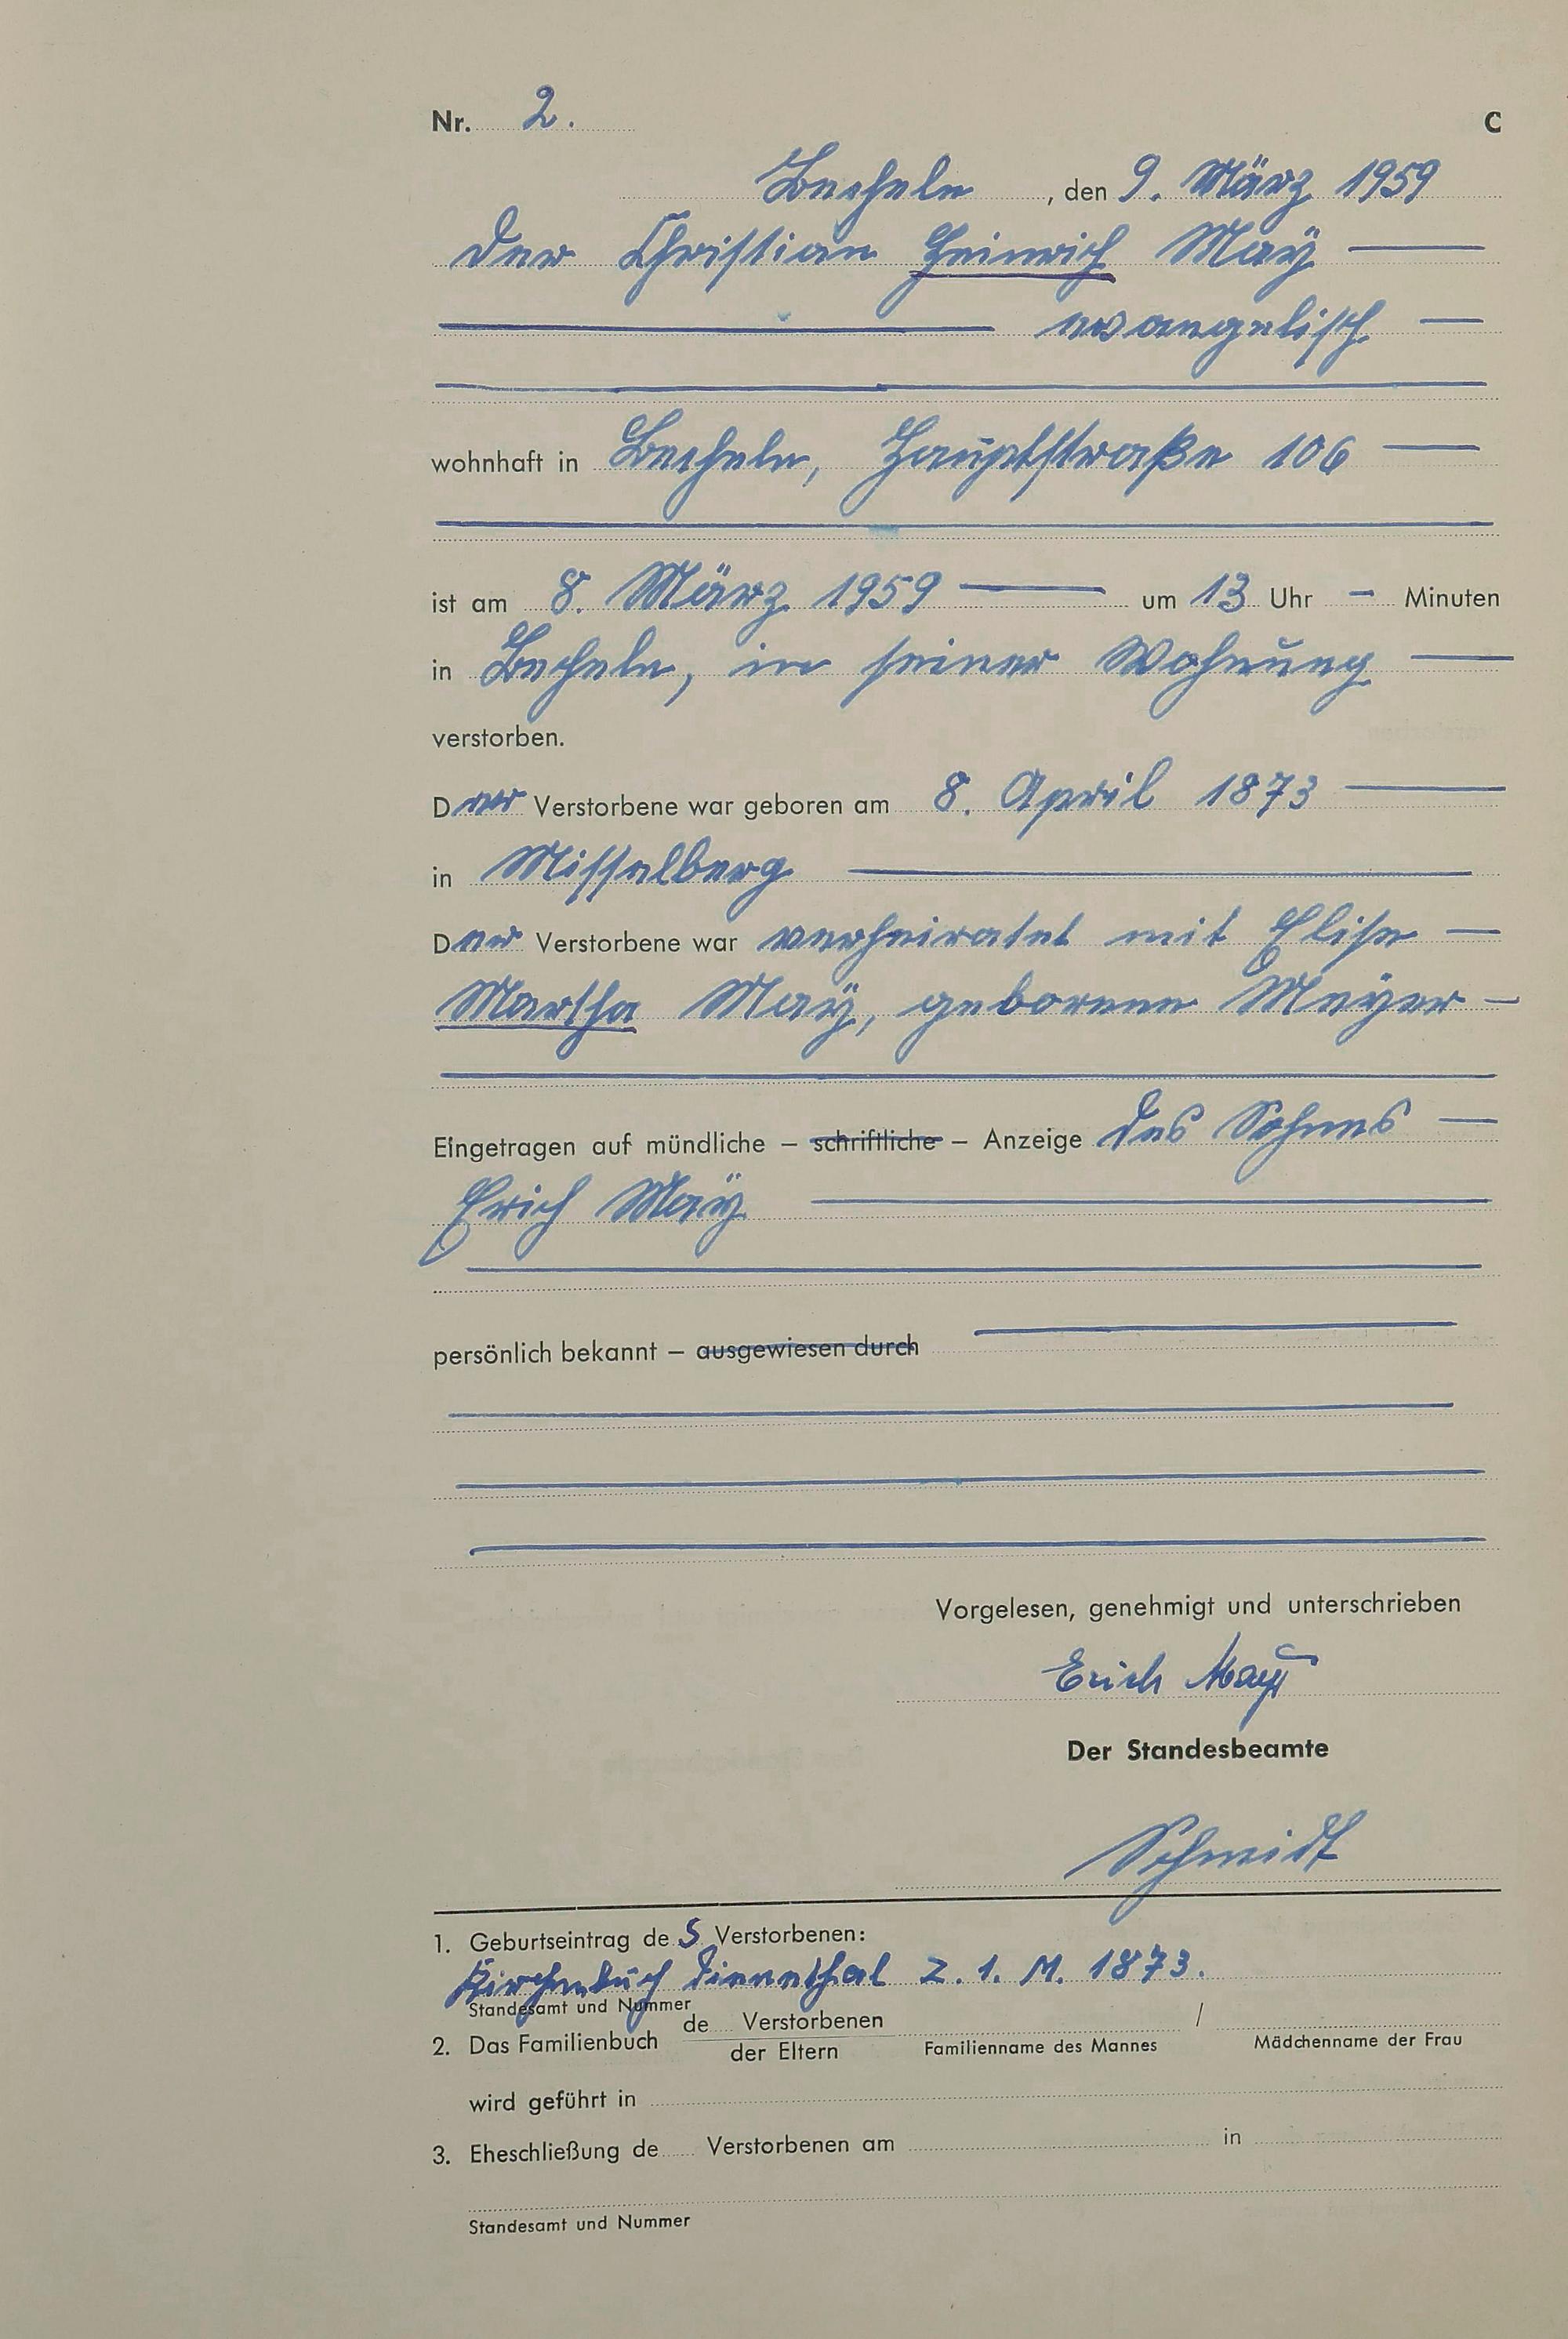 Nr. 2. C
Becheln, den 9. März 1959
Der Christian Heinrich Maÿ —
— evangelisch —
wohnhaft in Becheln, Hauptstraße 106 —
ist am 8. März 1959 — um 13 Uhr – Minuten
in Becheln, in seiner Wohnung —
verstorben.
Der Verstorbene war geboren am 8. April 1873 —
in Misselberg —
Der Verstorbene war verheiratet mit Elise —
Martha Maÿ, geborene Meÿer –
Eingetragen auf mündliche – schriftliche – Anzeige des Sohnes —
Erich Maÿ —
persönlich bekannt – ausgewiesen durch —
Vorgelesen, genehmigt und unterschrieben
Erich May
Der Standesbeamte
Schmidt
1. Geburtseintrag des Verstorbenen:
Kirchenbuch Dienethal Z. 1. M. 1873.
Standesamt und Nummer
2. Das Familienbuch de Verstorbenen /
der Eltern Familienname des Mannes Mädchenname der Frau
wird geführt in
3. Eheschließung de Verstorbenen am in
Standesamt und Nummer